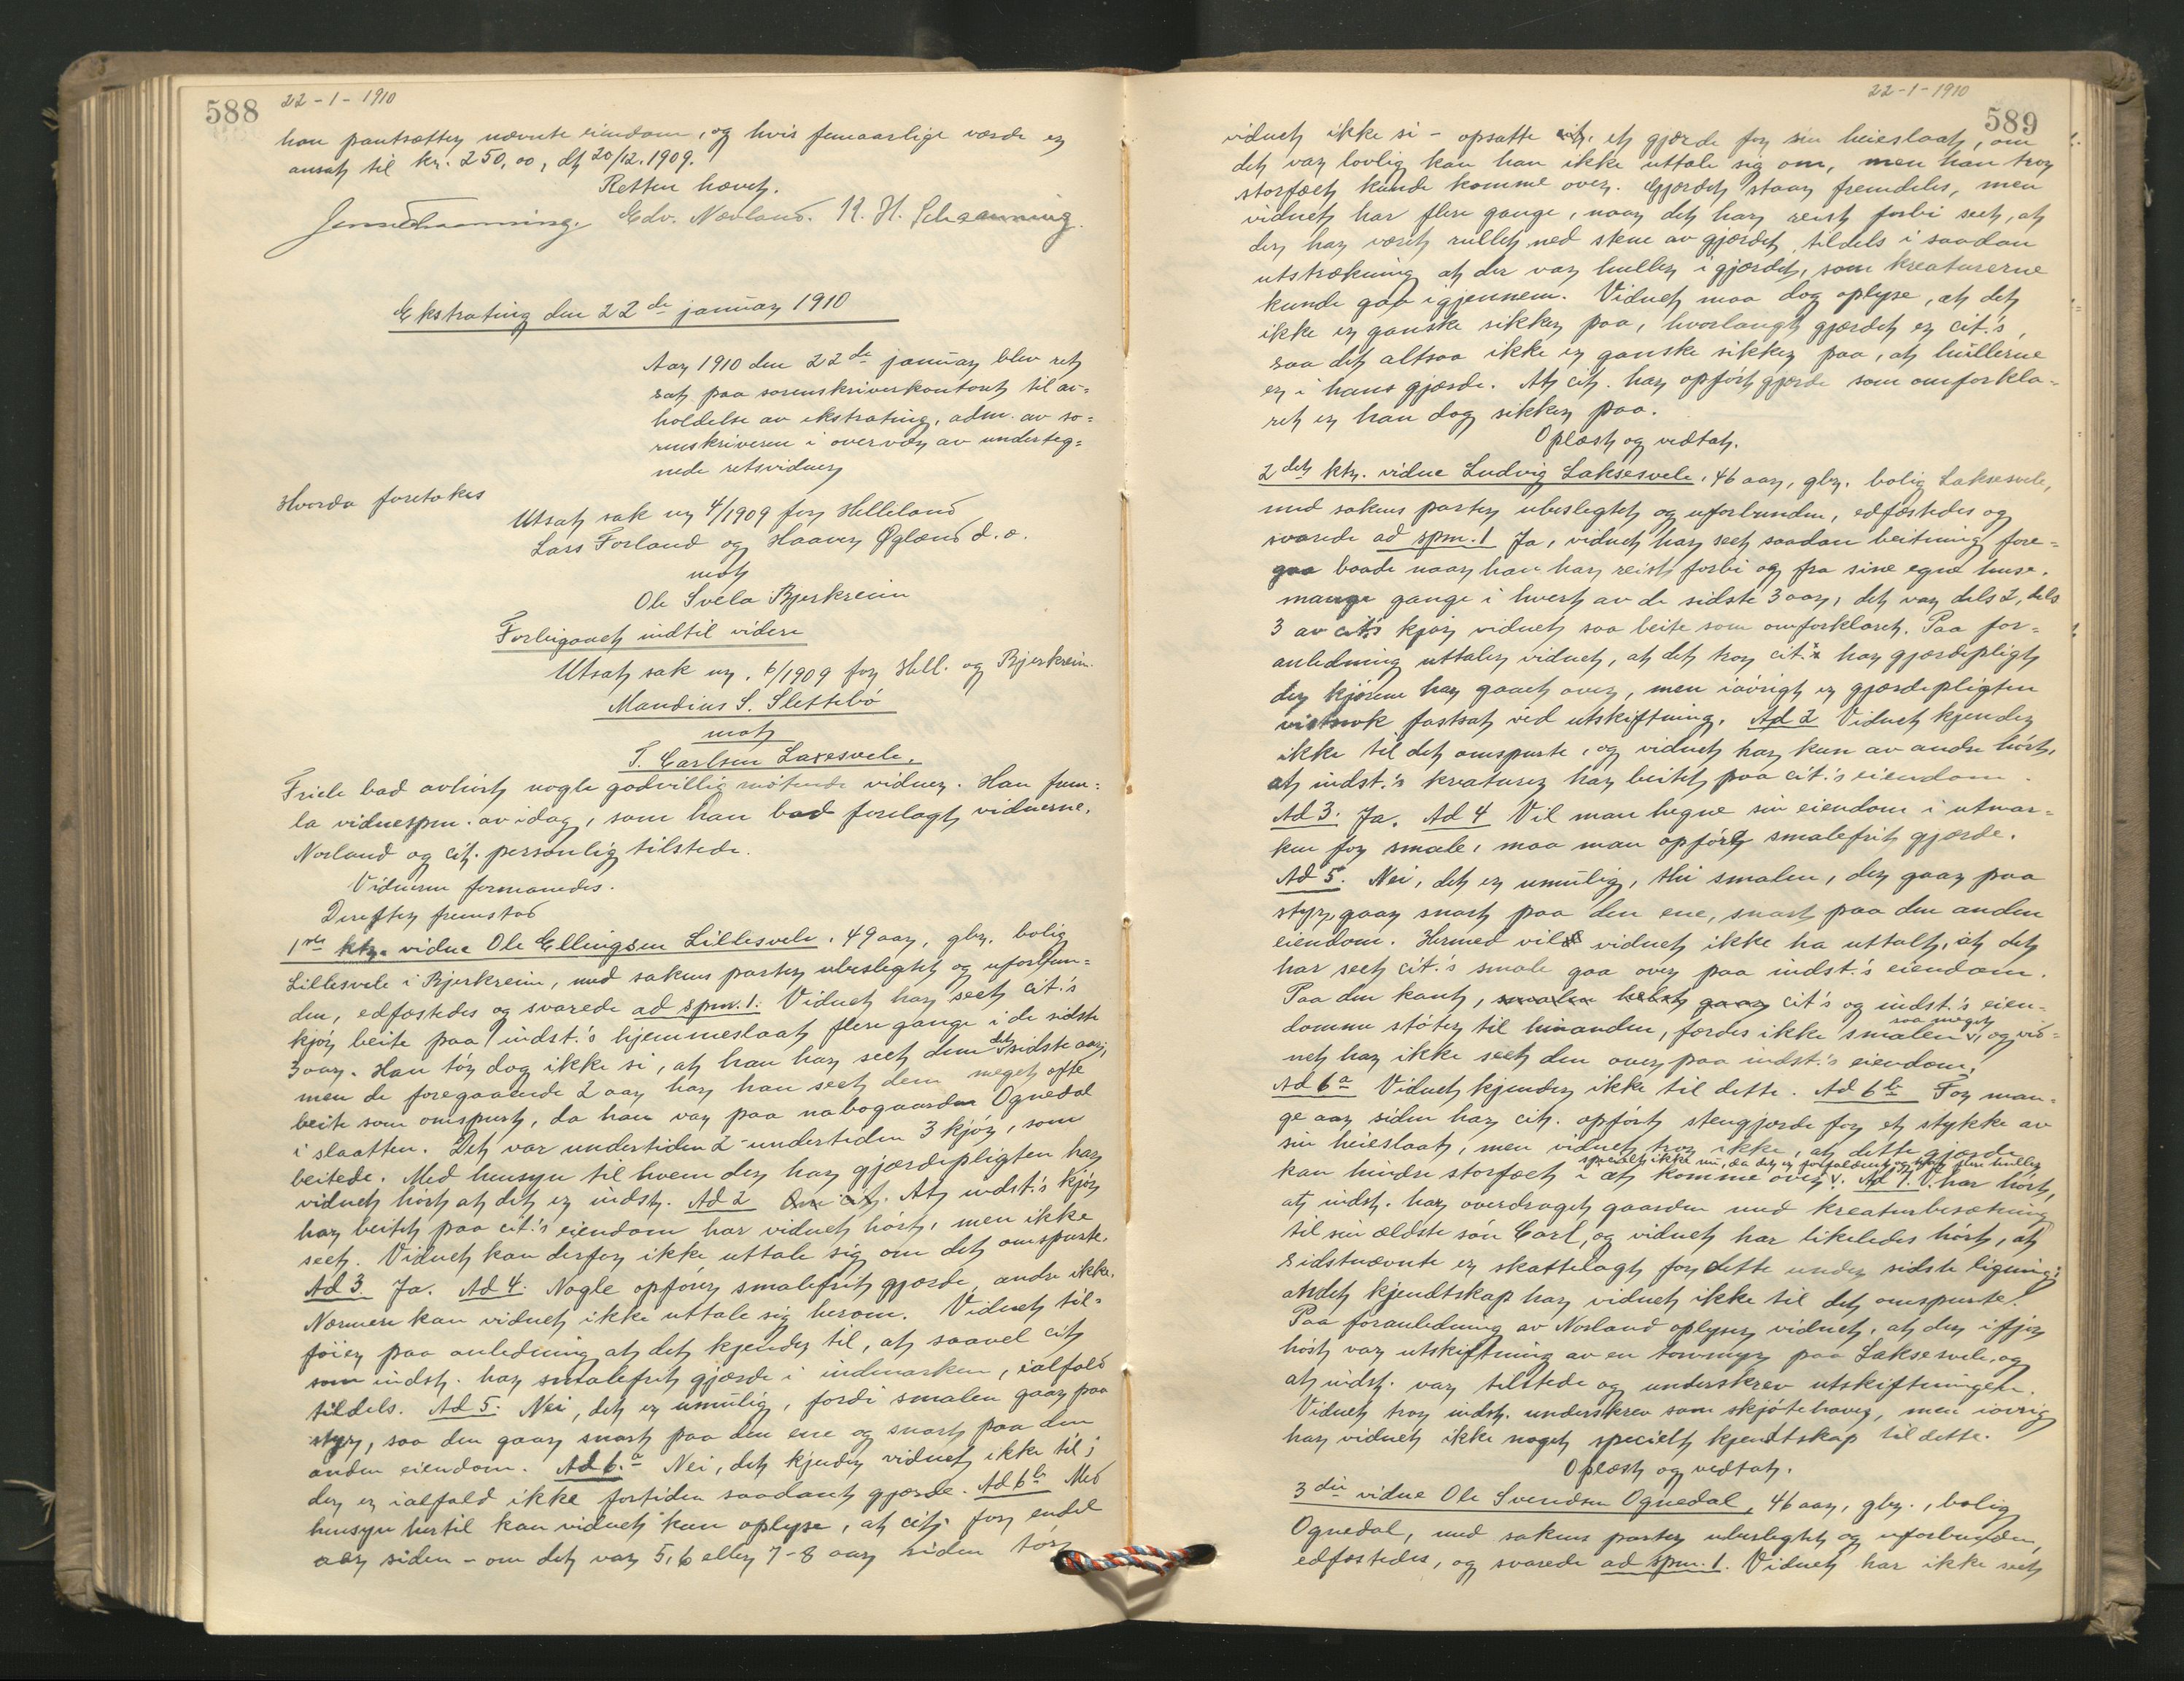 588
22-1-1910
han pantsætter nævnte eiendom, og hvis femaarlige værdi er
ansat til kr. 250,00, dt 20/12. 1909.
Retten hævet.
Jens Schaanning. Edv. Nævland. R. H. Schaanning.
Ekstrating den 22de januar 1910
Aar 1910 den 22de januar blev ret
sat paa sorenskriverkontoret til av-
holdelse av ekstrating, adm. av so-
renskriveren i overvær av underteg-
nede retsvidner
Hvorda foretokes
Utsat sak nr 4/1909 for Helleland
Lars Forland og Haaver Øgland d. o.
mot
Ole Svela Bjerkreim
Forligaaet indtil videre
Utsat sak nr. 6/1909 for Hell. og Bjerkreim.
Mandius S. Slettebø
mot
T. Carlsen Laxesvele.
Friele bad avhørt nogle godvillig møtende vidner. Han frem-
la vidnespm. av idag, som han bad forelagt vidnerne.
Norland og cit. personlig tilstede.
Vidnerne formanedes.
Derefter fremstod
1ste ktr. vidne Ole Ellingsen Lillesvele, 49 aar, gbr. bolig
Lillesvele i Bjerkreim, med sakens parter ubeslegtet og uforbun-
den, edfæstedes og svarede ad spm. 1. Vidnet har seet cit.'s
kjør beite paa indst.'s hjemmeslaat flere gange i de sidste
3 aar. Han tør dog ikke si, at han har seet dem det sidste aar,
men de foregaaende 2 aar har han seet dem meget ofte
beite som omspurt, da han var paa nabogaarden Ognedal
i slaatten. Det var undertiden 2 undertiden 3 kjør, som
beitede. Med hensyn til hvem der har gjærdepligten har
vidnet hørt at det er indst. Ad 2 Om cit. At indst.'s kjør
har beitet paa cit.'s eiendom har vidnet hørt, men ikke
seet. Vidnet kan derfor ikke uttale sig om det omspurte.
Ad 3. Ja. Ad 4: Nogle opfører smalefrit gjærde, andre ikke.
Nærmere kan vidnet ikke uttale sig herom. Vidnet til-
føier paa anledning at det kjender til, at saavel cit
som indst. har smalefrit gjærde i indmarken, ialfald
tildels. Ad 5. Nei, det er umulig, fordi smalen gaar paa
styr, saa den gaar snart paa den ene og snart paa den
anden eiendom. Ad 6.a Nei, det kjender vidnet ikke til;
der er ialfald ikke fortiden saadant gjærde. Ad 6b Med
hensyn hertil kan vidnet kun oplyse, at cit. for endel
aar siden - om det var 5, 6 eller 7-8 aar siden tør
22-1-1910
589
vidnet ikke si - opsatte et gjærde for sin heieslaat, om
det var lovlig kan han ikke uttale sig om, men han tror
storfæet kunde komme over. Gjærdet staar fremdeles, men
vidnet har flere gange, naar det har reist forbi seet, at
der har været rullet ned stene av gjærdet tildels i saadan
utstrækning at der var huller i gjærdet, som kreaturerne
kunde gaa igjennem. Vidnet maa dog oplyse, at det
ikke er ganske sikker paa, hvorlangt gjærdet er cit.'s,
saa det altsaa ikke er ganske sikker paa, at hullerne
er i hans gjærde. At cit. har opført gjærde som omforkla-
ret er han dog sikker paa.
Oplæst og vedtat.
2det ktr. vidne Ludvig Laksesvele, 46 aar, gbr. bolig Laksesvele,
med sakens parter ubeslegtet og uforbunden, edfæstedes og
svarede ad spm. 1 Ja, vidnet har seet saadan beitning fore-
gaa baade naar han har reist forbi og fra sine egne huse.
mange gange i hvert av de sidste 3 aar, det var dels 2, dels
3 av cit's kjør vidnet saa beite som omforklaret. Paa for-
anledning uttaler vidnet, at det tror cit. har gjærdepligt
der kjørene har gaaet over, men iøvrigt er gjærdepligten
vistnok fastsat ved utskiftning. Ad 2 Vidnet kjender
ikke til det omspurte, og vidnet har kun av andre hørt,
at indst.'s kreaturer har beitet paa cit.'s eiendom.
Ad 3. Ja. Ad 4 Vil man hegne sin eiendom i utmar-
ken for smale, maa man opføre smalefrit gjærde.
Ad 5. Nei, det er umulig, thi smalen, der gaar paa
styr, gaar snart paa den ene, snart paa den anden
eiendom. Hermed vil vidnet ikke ha uttalt, at det
har seet cit.'s smale gaa over paa indst.'s eiendom.
Paa den kant, smalen helst gaar cit's og indst.'s eien-
domme støter til hinanden, færdes ikke smalen saa meget, og vid-
net har ikke seet den over paa indst.'s eiendom.
Ad 6a Vidnet kjender ikke til dette. Ad 6b For man-
ge aar siden har cit. opført stengjærde for et stykke av
sin heieslaat, men vidnet tror ikke, at dette gjærde
specielt ikke nu, da det er forfaldent og har flere huller
kan hindre storfæet i at komme over. Ad 7. V. har hørt,
at indst. har overdraget gaarden med kreaturbesætning
til sin ældste søn Carl, og vidnet har likeledes hørt, at
sidstnævnte er skattelagt for dette under sidste ligning;
andet kjendtskap har vidnet ikke til det omspurte.
Paa foranledning av Norland oplyser vidnet, at der ifjor
høst var utskiftning av en torvmyr paa Laksesvele, og
at indst. var tilstede og underskrev utskiftningen.
Vidnet tror indst. underskrev som skjøtehaver, men iøvrig
har vidnet ikke noget specielt kjendtskap til dette.
Oplæst og vedtat.
3die vidne Ole Svendsen Ognedal, 46 aar, gbr., bolig
Ognedal, med sakens parter ubeslegtet og uforbunden,
edfæstedes, og svarede ad spm. 1. Vidnet har ikke seet